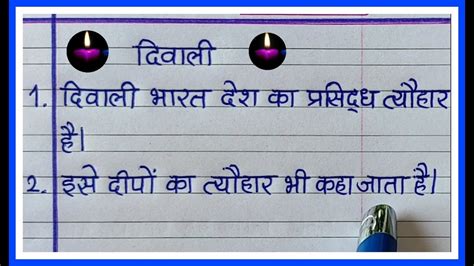 दिवाली
1. दिवाली भारत देश का प्रसिद्ध त्यौहार
है।
2. इसे दीपों का त्यौहार भी कहा जाता है।